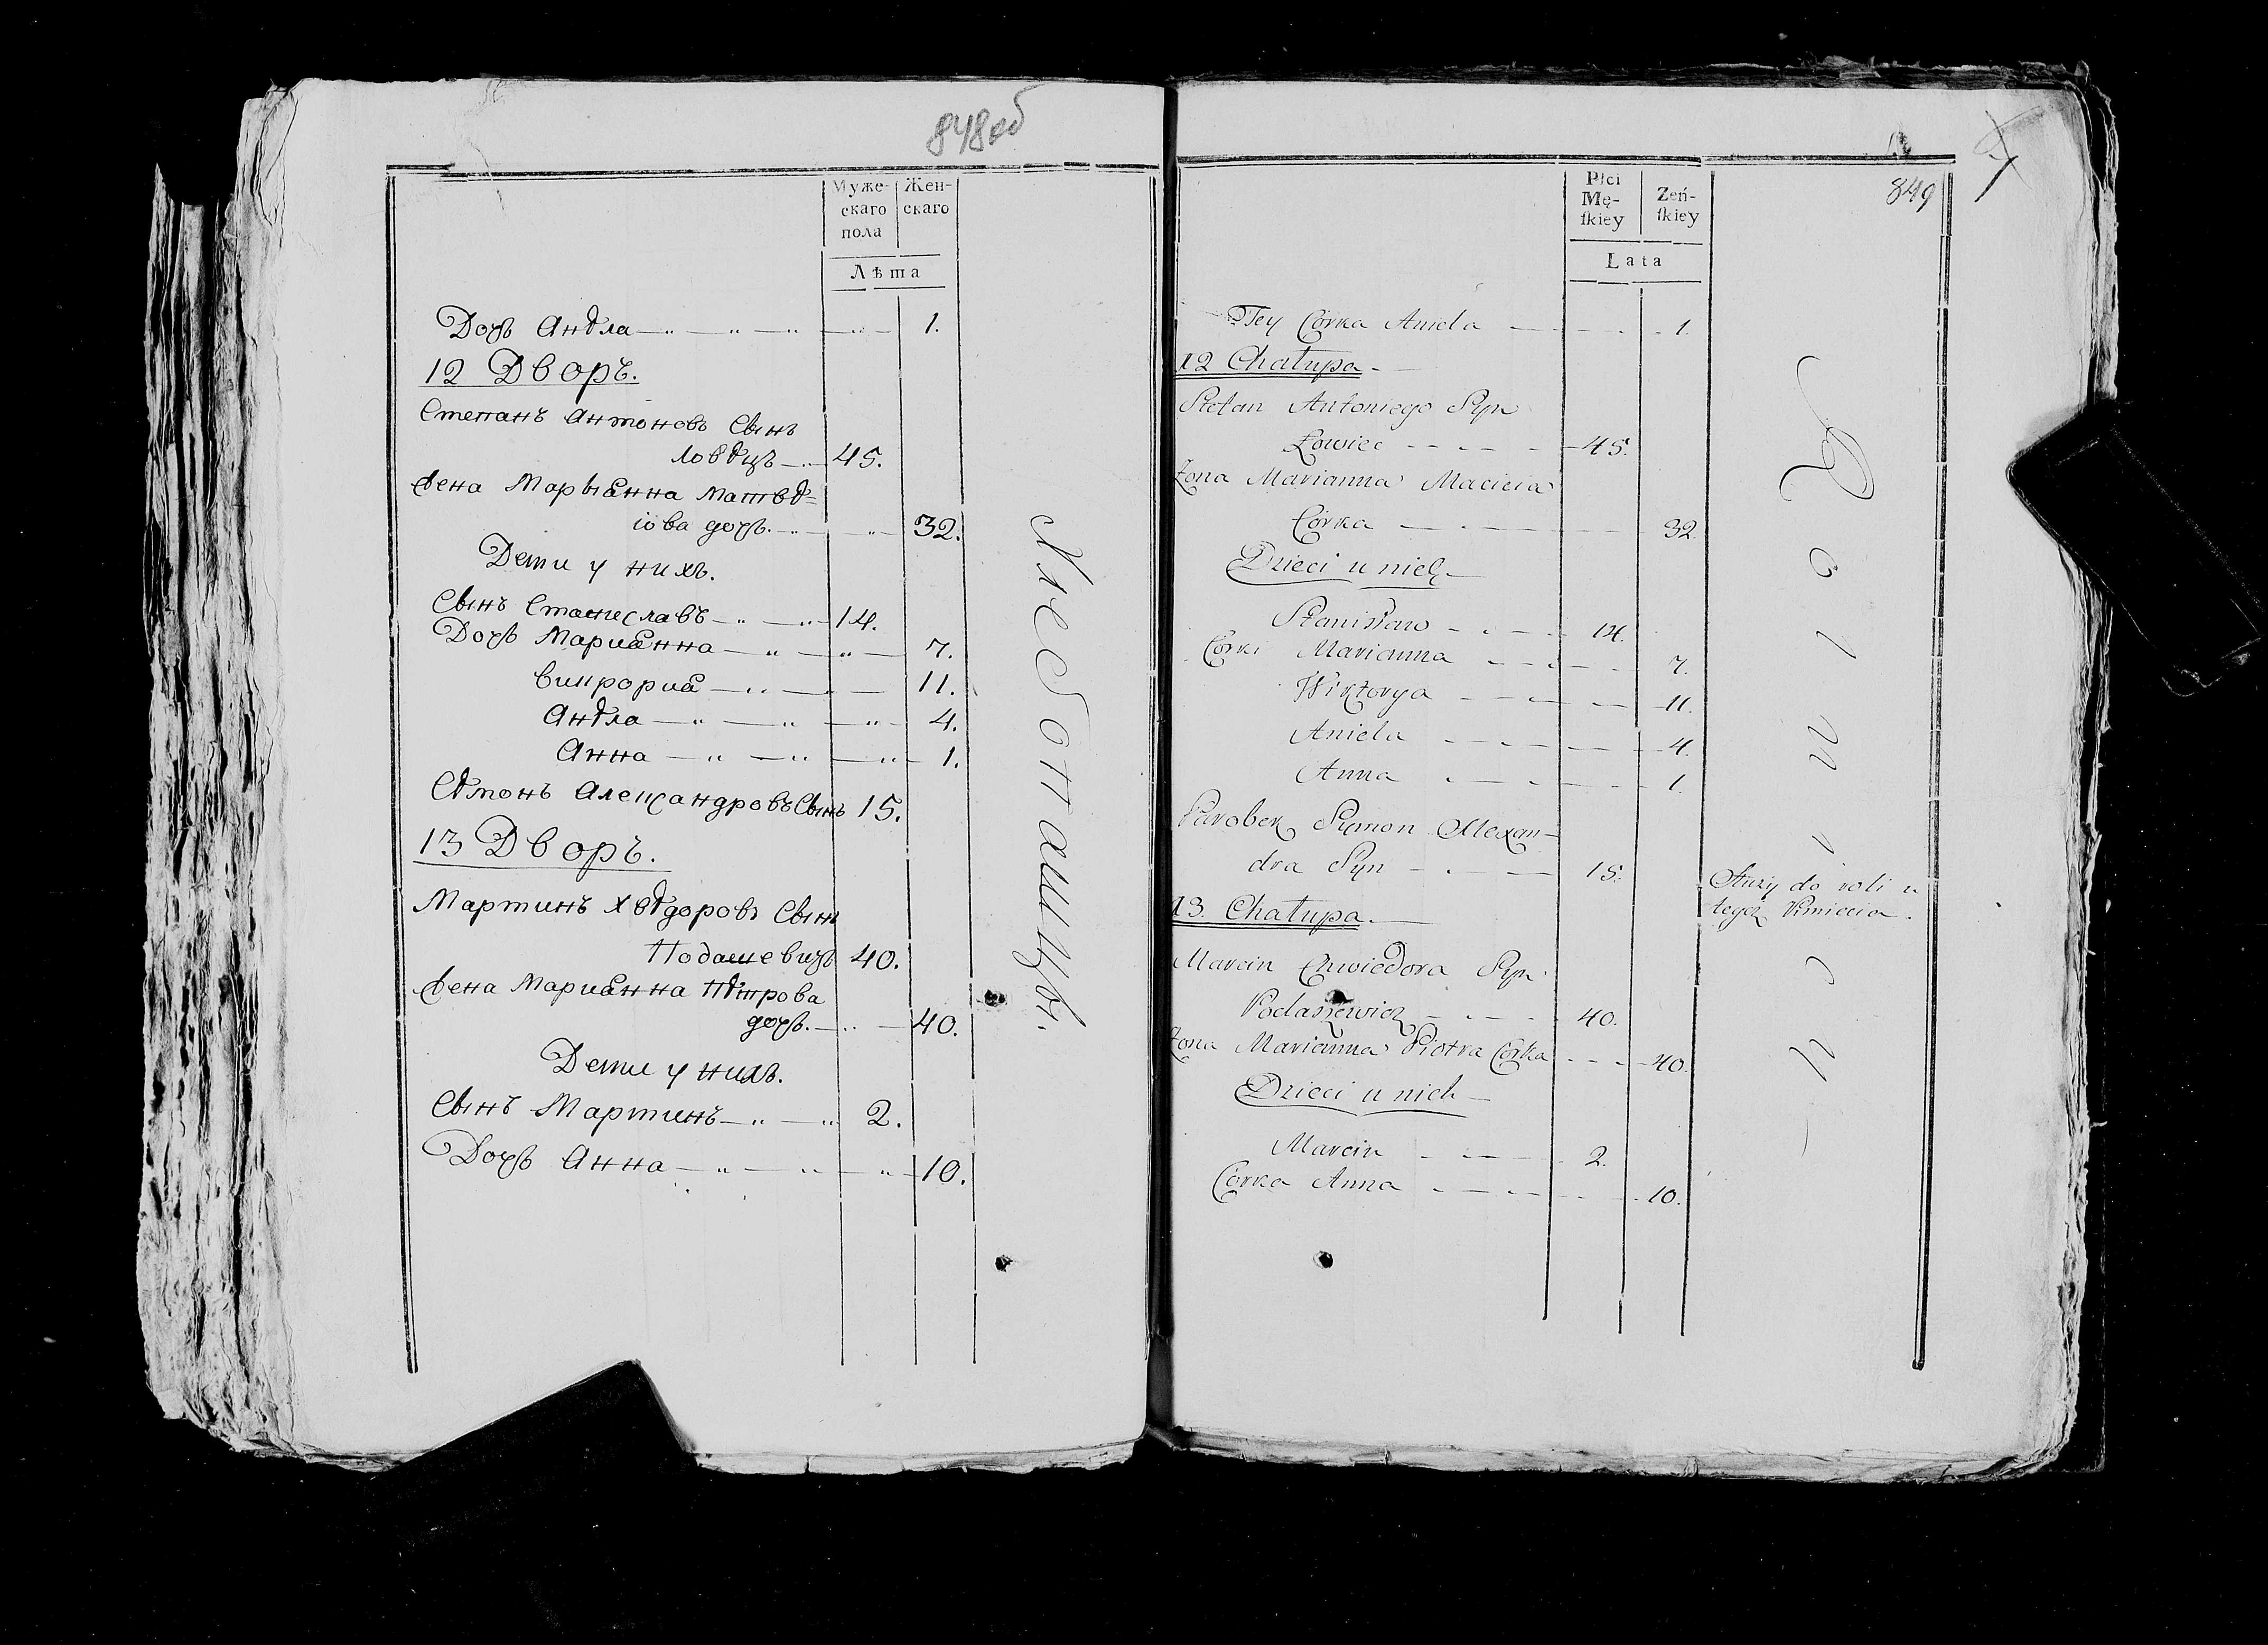 848об
Муже-
скаго
пола
Жен-
скаго
Лѣта
Дочь Анѣла 1.
12 Дворъ.
Степанъ Антоновъ Сынъ
Ловѣцъ 45.
Жена Марыанна Матвѣ=
іова дочь. 32.
Дети у нихъ.
Сынъ Станеславъ 14.
Дочь Марианна 7.
Викророиа 11.
Анѣла 4.
Анна 1.
Сѣмонъ АлександровъСынъ 15.
13 Дворъ.
Мартинъ Хвѣдоровъ Сынъ
Подашевичъ 40.
Жена Марианна Пѣтрова
дочь. 40.
Дети у нихъ.
Сынъ Мартинъ 2.
Дочь Анна 10.
Хлебопашцы.
849
7
Płci
Mę-
ſkiey
Zeń-
ſkiey
Lata
Tey Córka Aniela 1.
12 Chałupa
Stefan Antoniego Syn
Łowiec 45.
Żona Marianna Macieia
Córka 32
Dzieci u nich
Stanisław 14.
Córki Marianna 7.
Wiktorya 11.
Aniela 4.
Anna 1.
Parobek Symon Alexan-
dra Syn 15.
Służy do roli u
tegoż Kmiecia.
13. Chałupa.
Marcin Chwiedora Syn
Podaszewicz 40.
Żona Marianna Piotra Córka 40.
Dzieci u nich
Marcin 2.
Córka Anna 10.
Rolnicy